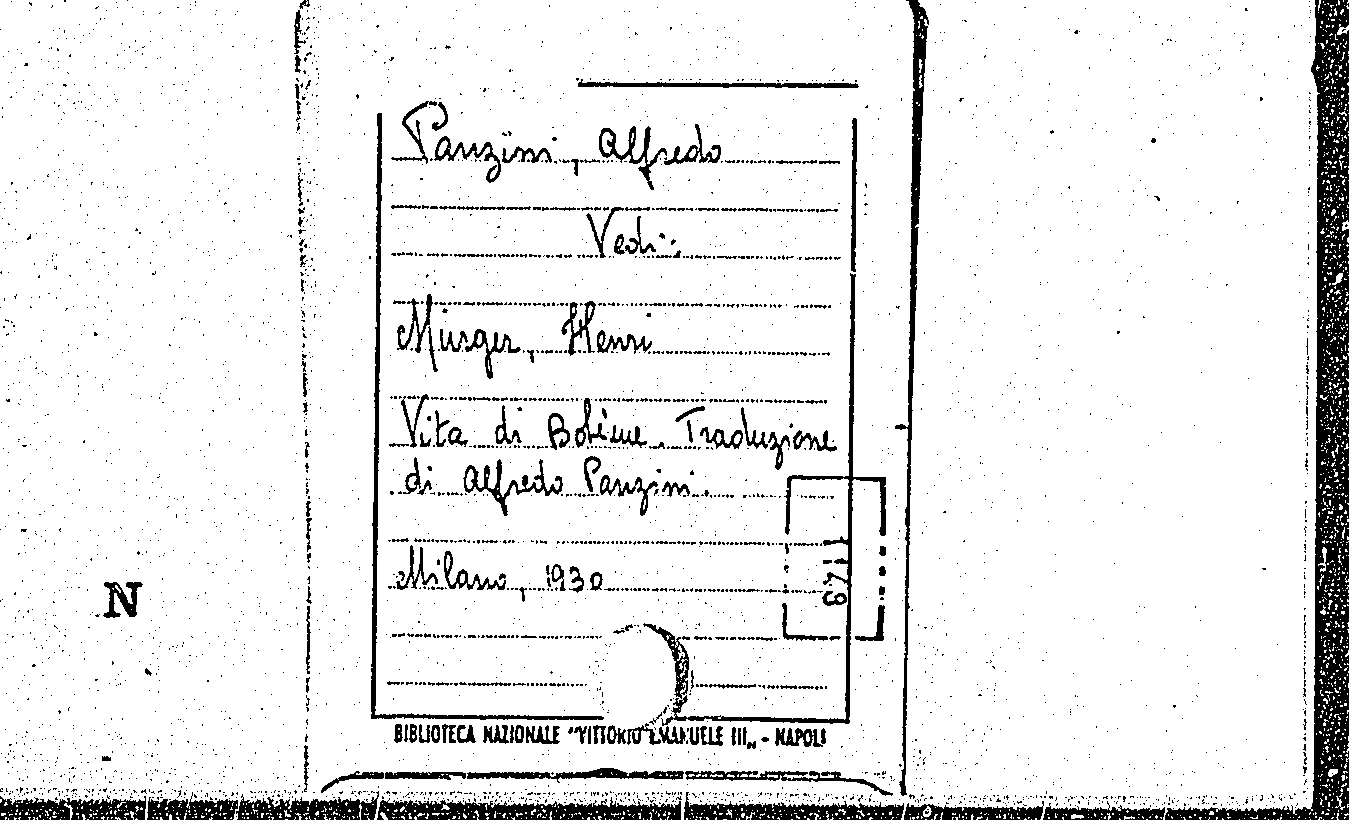 Panzini, Alfredo
Vedi:
Mürger, Henri
Vita di Bohème. Traduzione
di Alfredo Panzini.
Milano, 1930
1149
N
BIBLIOTECA NAZIONALE "VITTORIO EMANUELE III„ - NAPOLI